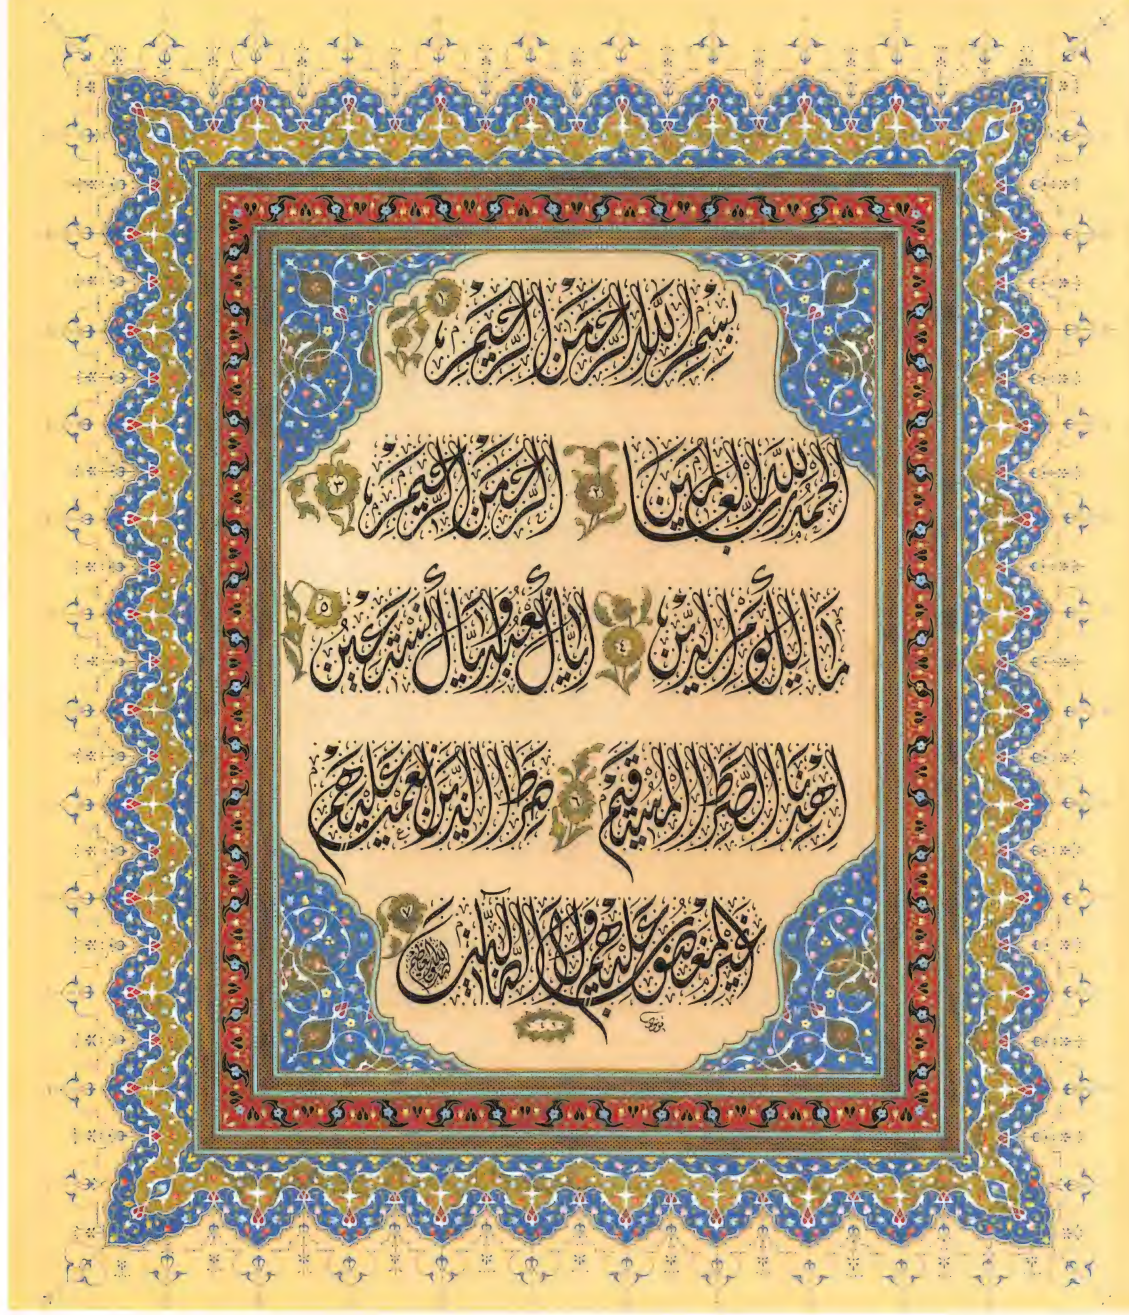 بِسْمِ اللَّهِ الرَّحْمَنِ الرَّحِيمِ ١
الْحَمْدُ لِلَّهِ رَبِّ الْعَالَمِينَ ٢ الرَّحْمَنِ الرَّحِيمِ ٣
مَالِكِ يَوْمِ الدِّينِ ٤ إِيَّاكَ نَعْبُدُ وَإِيَّاكَ نَسْتَعِينُ ٥
اهْدِنَا الصِّرَاطَ الْمُسْتَقِيمَ ٦ صِرَاطَ الَّذِينَ أَنْعَمْتَ عَلَيْهِمْ
غَيْرِ الْمَغْضُوبِ عَلَيْهِمْ وَلَا الضَّالِّينَ ٧